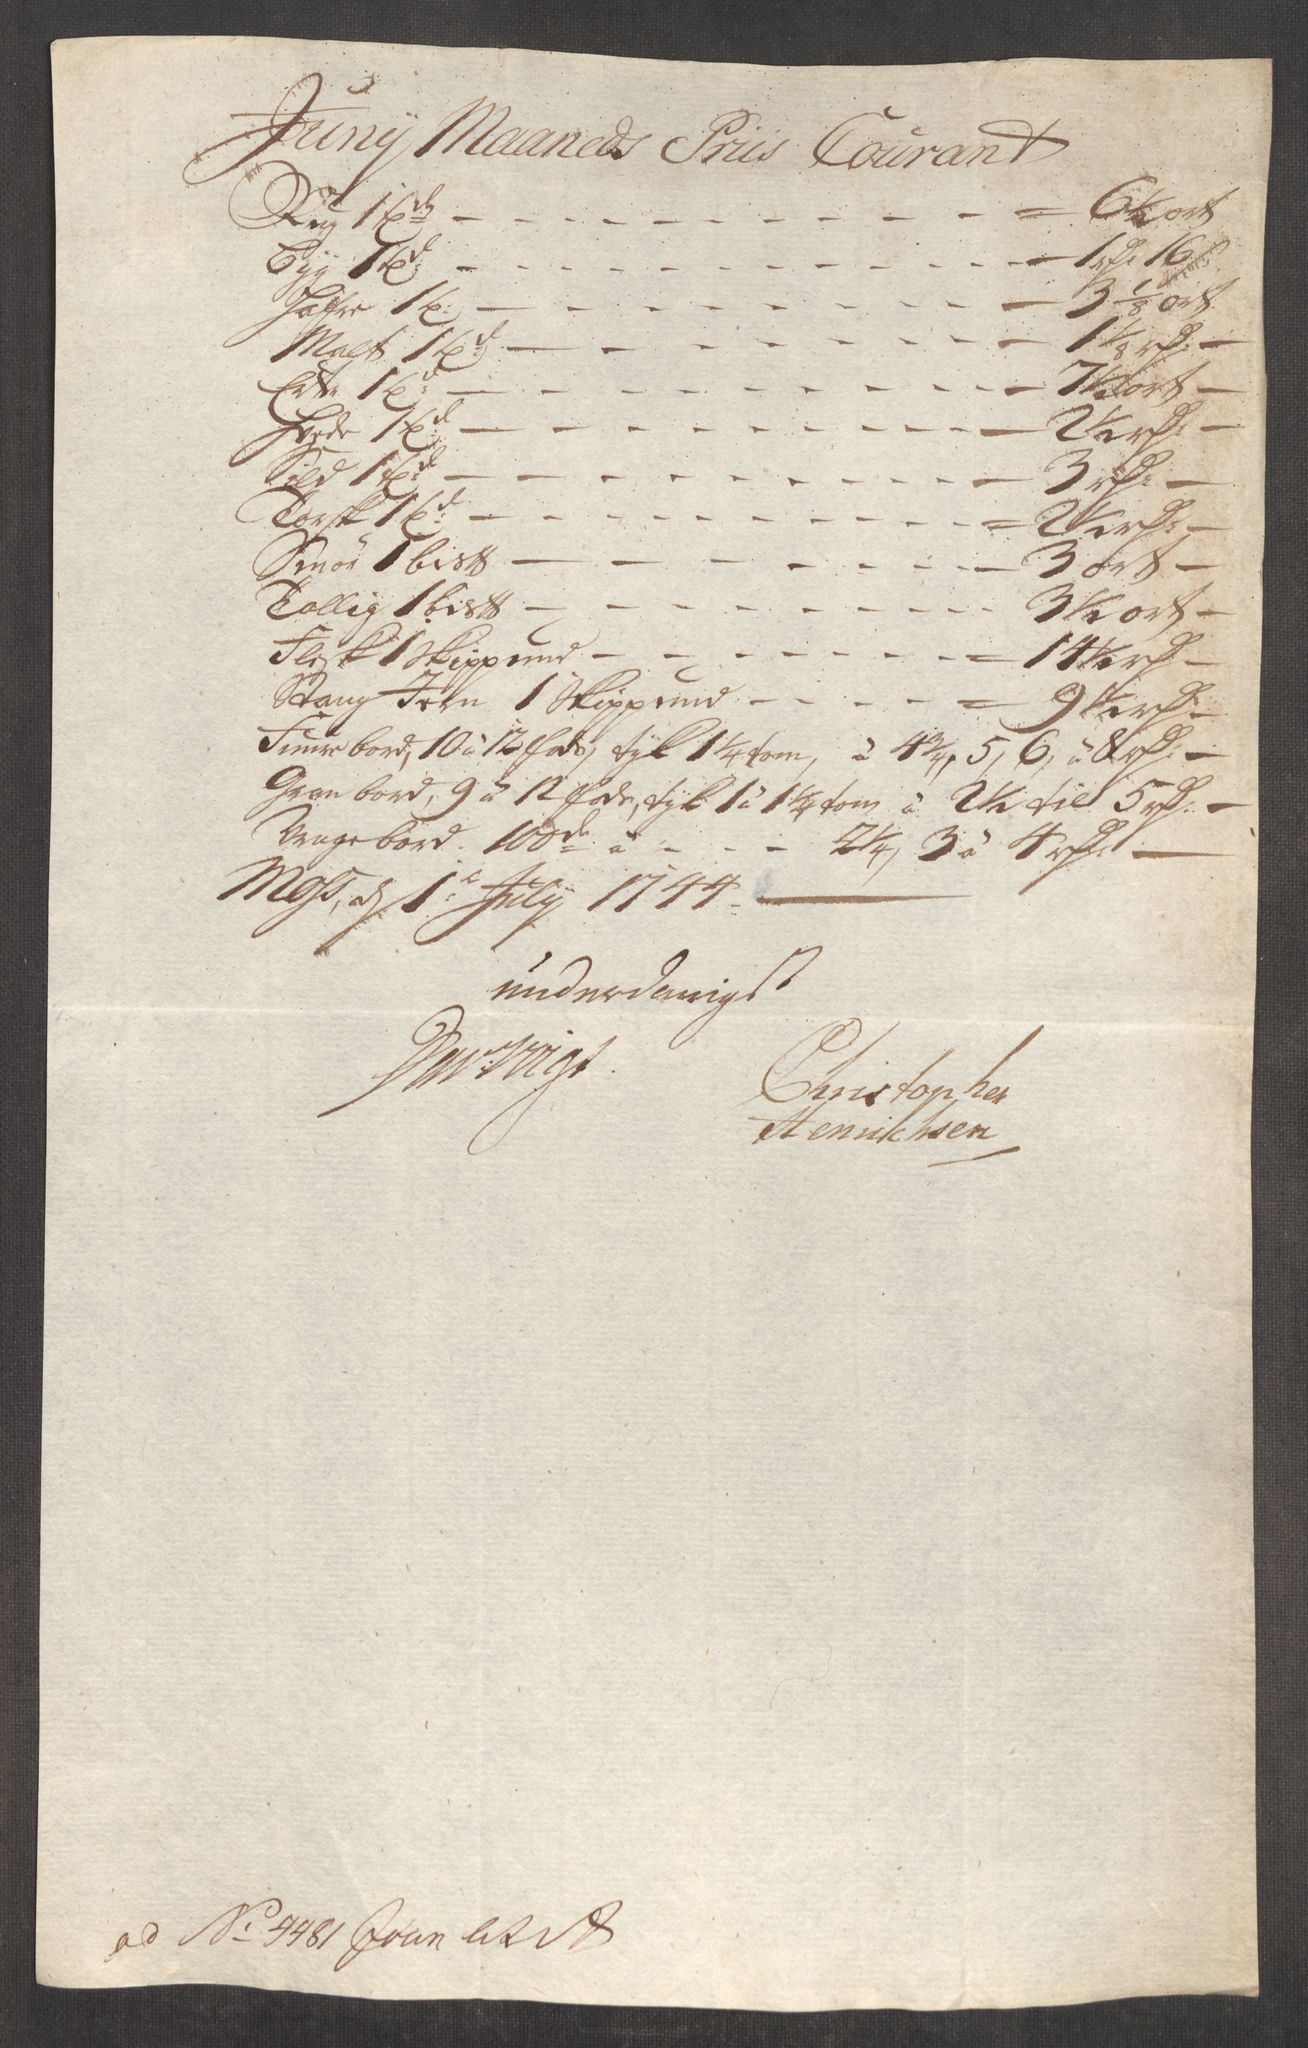 Juny Maaneds Priis Courant
Rug 1 td: - - - 6½ ort
Byg 1 td: - - - 1 rd: 16 s
Hafre 1 t: - - - 3 1/8 ort
Malt 1 td: - - - 1 1/8 rd: -
Erter 1 td: - - - 7½ ort -
Hvede 1 td: - - - 2½ rd: -
Sild 1 td: - - - 3 rd: -
Torsk 1 td: - - - 2½ rd: -
Smör 1 bism - - - 3 ort -
Tallig 1 bism - - - 3½ ort -
Flesk 1 Skippund - - - 14½ rd -
Stang Jern 1 Skippund - - - 9½ rd: -
Furre bord, 10 a 12 fods, tyk 1¼ tom, a 4¾, 5, 6, a 8 rd: -
Gran bord, 9 a 12 fods, tyk 1 a 1¼ tom a 2½ til 5 rd: -
Vrage bord 100de a - - - 2¼, 3 a 4 rd: -
Moss, d 1te July 1744
underdanigst
Christopher
Henrichsen
ad No: 4481